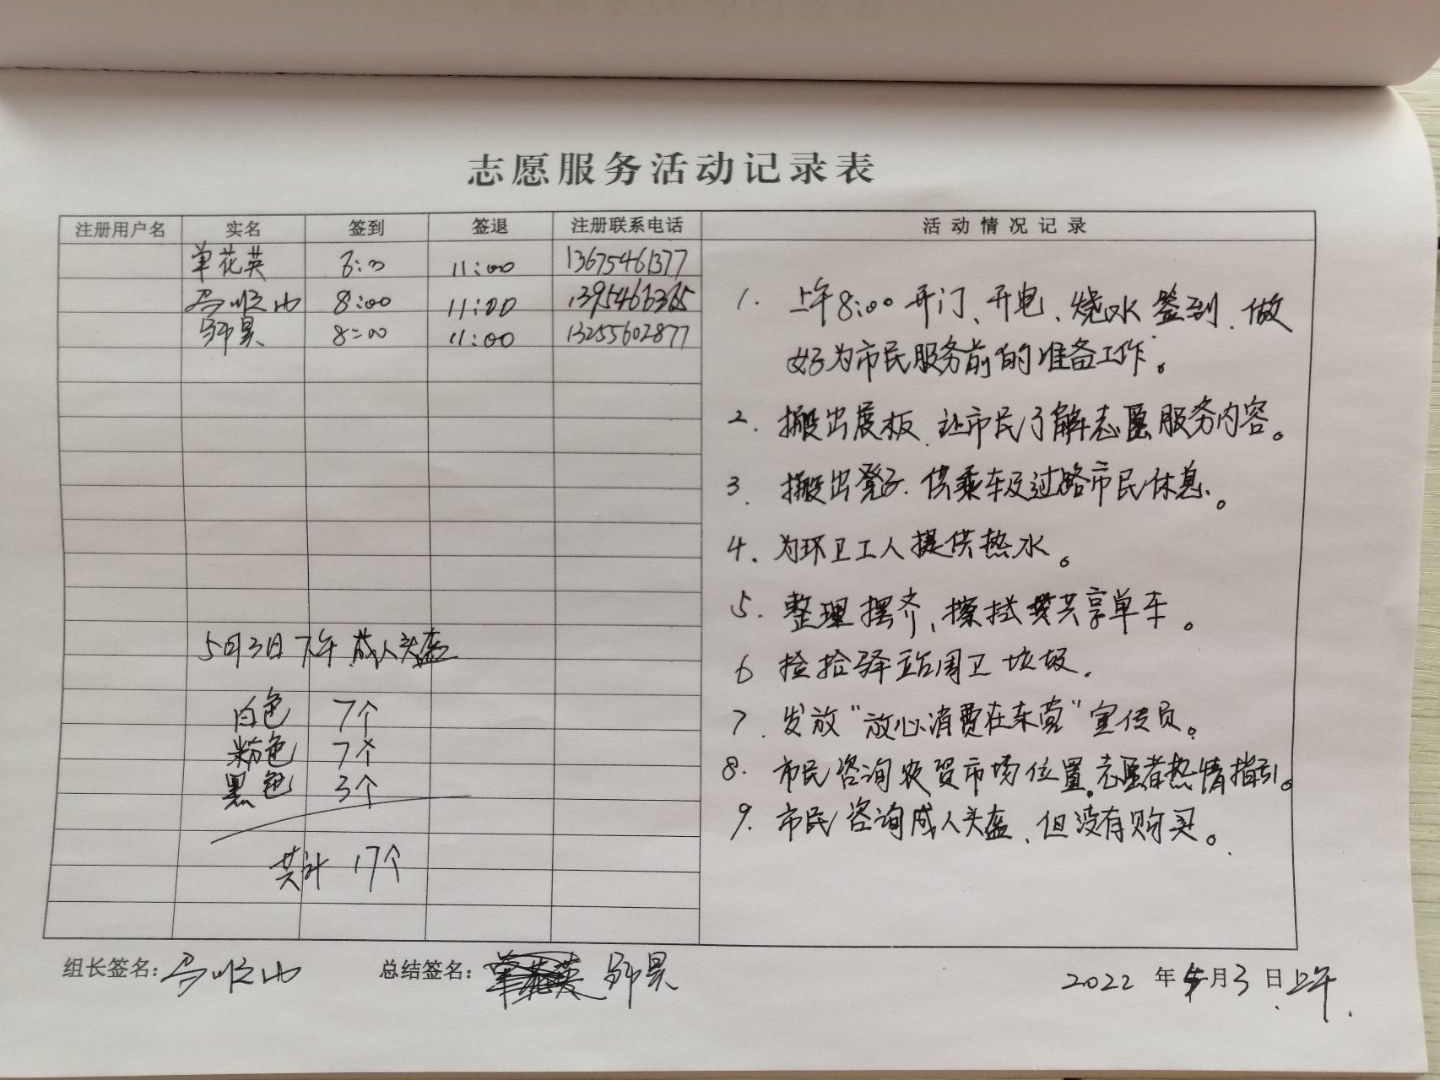 志愿服务活动记录表
注册用户名 实名 签到 签退 注册联系电话 活动情况记录
单花英 8:00 11:00 13675461377
马顺山 8:00 11:00 1395466365
郭昊 8:00 11:00 13255602877
1. 上午8:00开门、开电、烧水签到、做
好为市民服务前的准备工作。
2. 搬出展板、让市民了解志愿服务内容。
3. 搬出凳子、供乘车及过路市民休息。
4. 为环卫工人提供热水。
5. 整理摆齐、擦拭共享单车。
6 捡拾驿站周卫垃圾.
7. 发放"放心消费在东营"宣传员。
8. 市民咨询农贸市场位置,志愿者热情指引。
9. 市民咨询成人头盔、但没有购买。
5月3日下午 成人头盔
白色 7个
粉色 7个
黑色 3个
共计 17个
组长签名:马顺山 总结签名: 郭昊 2022年5月3日上午.